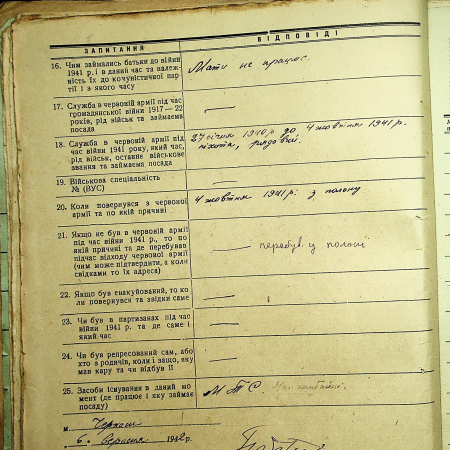 ЗАПИТАННЯ
ВІДПОВІДІ
16. Чим займались батьки до війни
1941 р. і в даний час та належ-
ність їх до комуністичної пар-
тії і з якого часу
Мати не працює.
17. Служба в червоній армії під час
громадянської війни 1917—22
років, рід військ та займаєма
посада
—
18. Служба в червоній армії під
час війни 1941 року, який час,
рід військ, останнє військове
звання та займаєма посада
27 січня 1940 р до 4 жовтня 1941 р.
піхота, рядовий.
19. Військова спеціальність
№ (ВУС)
—
20. Коли повернувся з червоної
армії та по якій причині
4 жовтня 1941 р. з полону
21. Якщо не був в червоній армії
під час війни 1941 р., то по
якій причині та де перебував
підчас відходу червоної армії
(чим може підтвердити, а коли
свідками то їх адреса)
— перебув. у полоні
22. Якщо був евакуйований, то ко-
ли повернувся та звідки саме
—
23. Чи був в партизанах під час
війни 1941 р. та де саме і
який час
—
24. Чи був репресований сам, або
хто з родичів, коли і защо, яку
мав кару та чи відбув її
—
25. Засоби існування в даний мо-
мент (де працює і яку займає
посаду)
М Т С.
м. Черкаси
„6„ вересня 1942 р.